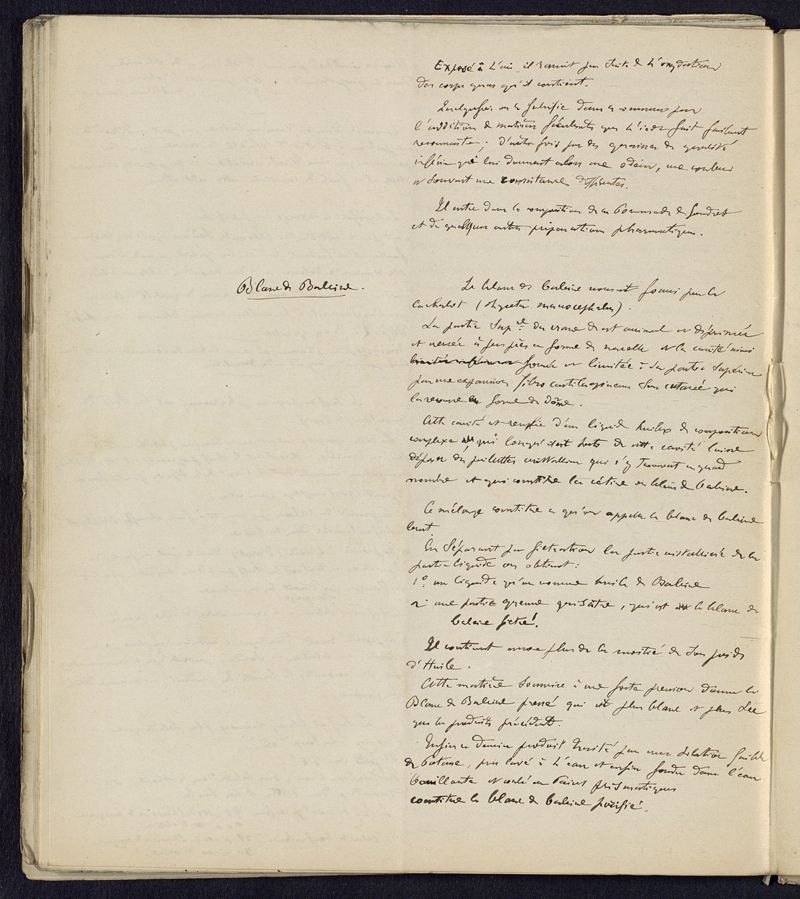 Exposé à l'air il rancit par suite de l'oxydation
des corps gras qu'il contient.
Quelquefois on le falsifie dans le commerce par
l'addition de matières féculentes que l'iode fait facilement
reconnaitre ; d'autres fois par des graisses de qualité
inférieure qui lui donnent alors une odeur, une couleur
et souvent une consistance différentes.
Il entre dans la composition de la Pommade de Gondret
et de quelques autres préparations pharmaceutiques.
Blanc de Baleine.
Le blanc de baleine nous est fourni par le
cachalot (physeter macrocephalus).
La partie Sup.re du crane de cet animal est déprimée
et renversée à peu près en forme de nacelle et la cavité ainsi
formée est limitée à sa partie Supérieure
par une expansion fibro cartilagineuse Sous cutanée qui
la recouvre en forme de Dôme.
Cette cavité est remplie d'un liquide huileux de composition
complexe qui lorsqu'il est sorti de cette cavité laisse
déposer des paillettes cristallines qui s'y trouvent en grand
nombre et qui constitue la cétine ou blanc de baleine.
Ce mélange constitue ce qu'on appelle le blanc de baleine
brut
En Séparant par filtration la partie cristallisée de la
partie liquide on obtient :
1° un liquide qu'on nomme huile de Baleine
2° une partie grenue grisâtre, qui est le blanc de
baleine filtré.
Il contient encore plus de la moitié de son poids
d'Huile.
Cette matière soumise à une forte pression donne le
Blanc de Baleine pressé qui est plus blanc et plus Sec
que le produit précédent.
Enfin ce dernier produit traité par une solution faible
de Potasse, puis lavé à l'eau et enfin fondu dans l'eau
bouillante et coulé en Pains prismatiques
constitue le blanc de baleine purifié.